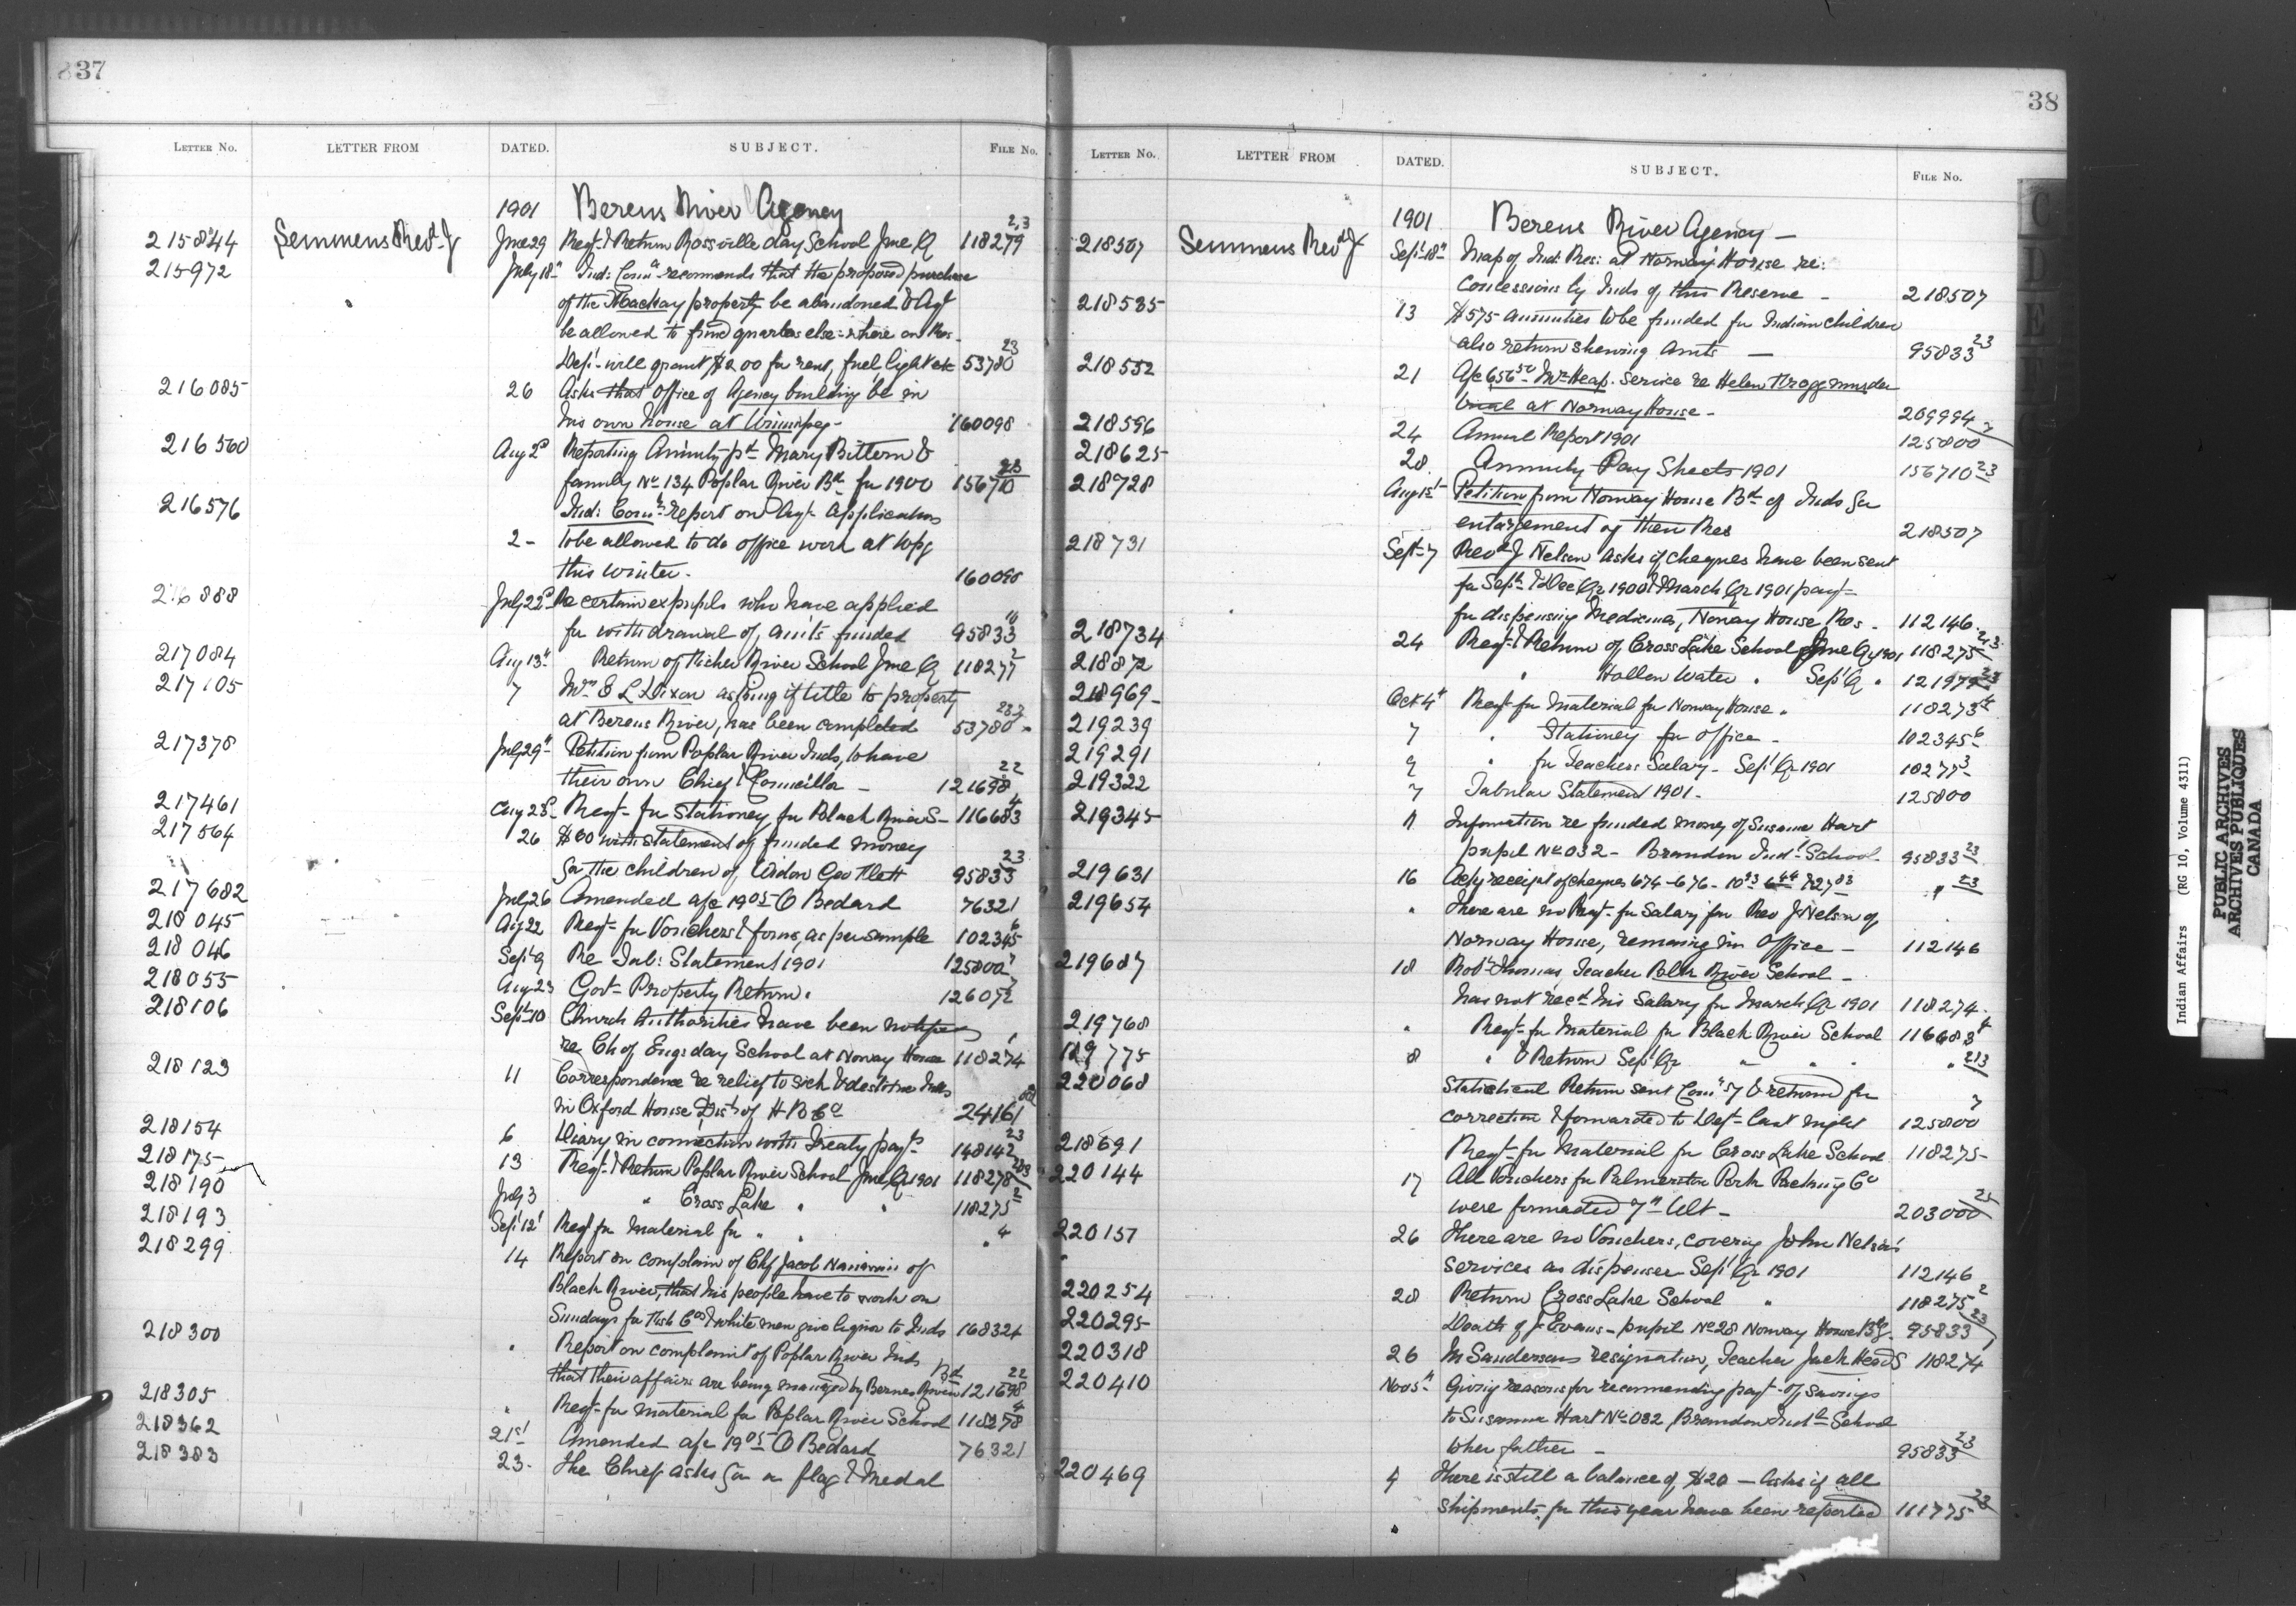 837
LETTER NO. LETTER FROM DATED. SUBJECT. FILE NO.
1901 Berens River Agency
215844 Semmens Revd J June 29 Reqt & Return Rossville day School June Q 118279 2,3
215972 July 18th Ind: Comr recommends that the proposed purchase
of the Mackay property be abandoned & Agt
be allowed to find quarters else-where on Res.
Dept will grant $200 for rent, fuel light etc 53780 23
216085 26 Asks that office of Agency building be in
his own house at Winnipeg - 160098
216560 Aug 2d Reporting Annuity pd Mary Bittern &
family No 134 Poplar River Bd for 1900 156710 23
216576 Ind: Comr's report on Agt Applications
2 - to be allowed to do office work at Wpg
this winter. 160098
216888 July 22d Re certain expupils who have applied
for withdrawal of, amts funded 95833
217084 Aug 13th Return of Fisher River School June Q 118277 2
217105 7 Mrs E L Dixon asking if title to property
at Berens River, has been completed 53780
217378 July 29th Petition from Poplar River Inds, to have
their own Chief & Councillor - 121698 22
217461 Aug 23d Reqt - for Stationery for Black River S - 116683 4
217564 26 $80 with statement of funded money
for the children of Widow Geo Flett 95833 23
217682 July 26 Amended a/c 1905 O Bedard 76321
218045 Aug 22 Reqt - for Vouchers & forms, as per sample 102345 6
218046 Sept 9 Re Tab: Statement 1901 125800 7
218055 Aug 23 Govt - Property Return. 126052
218106 Sept 10 Church Authorities have been notified
re Ch of Engs day School at Norway House 118274 1
218123 11 Correspondence re relief to sick & destitute Inds
in Oxford House Dist of H B Co 24161
218154 6 Diary in connection with Treaty payts 148142 23
218175 13 Reqt & Return Poplar River School June Q 1901 118278 2&3
218190 July 3 " Cross Lake " " 118275 2
218193 Sept 12 Reqt for Material for " " " 4
218299 14 Report on complaint of Chf Jacob of
Black River, that his people have to work on
Sundays for Fish Cos & white men give liquor to Inds 168324
218300 " Report on complaint of Poplar River Inds
that their affairs are being managed by Berens River Bd 121698 22
218305 " Reqt - for Material for Poplar River School 118278 4
218362 21st Amended a/c 1905 O Bedard 76321
218383 23. The Chief asks for a flag & Medal
38
LETTER NO. LETTER FROM DATED. SUBJECT. FILE NO.
1901 Berens River Agency -
218507 Semmens Revd J Sept 18th Map of Ind: Res: at Norway House re:
Concessions by Inds of this Reserve - 218507
218535 13 $575 annuities to be funded for Indian children
also return shewing amts - 95833 23
218552 21 A/c 65650 Mr Heap. Service re Helen Frogg murder
trial at Norway House - 209994
218596 24 Annual Report 1901 125800
218625 28 Annuity Pay Sheets 1901 156710 23
218728 Aug 15t Petition from Norway House Bd of Inds for
enlargement of their Res 218507
218731 Sept 7 Revd J Nelson asks if cheques have been sent
for Sept & Dec Qr 1900 & March Qr 1901 payt
for dispensing Medicines, Norway House Res. 112146
218734 24 Reqt & Return of Cross Lake School June Q 1901 118275 2&3
218872 " Hollow Water " Sept Q " 121979
218969 Oct 4th Reqt for Material for Norway House " 118273 4
219239 7 " Stationery for office - 102345 6
219291 9 " for Teachers Salary - Sept Qr 1901 10277 3
219322 7 Tabular Statement 1901 - 125800
219345 11 Information re funded money of Susanna Hart
pupil No 032 - Brandon Indl School - 95833 23
219631 16 Ackg receipt of cheques 674-676- " 23
219654 " There are no Reqt - for Salary for Rev J Nelson of
Norway House, remaining in Office - 112146
219687 18 Robt Thomas, Teacher River School -
has not recd his Salary for March Qr 1901 118274
219768 " Reqt - for Material for Black River School 116683 4
219775 8 " & Return Sept Qr " " " " 2&3
220068 Statistical Return sent Comr & returned for
correction & forwarded to Dept last night 125800 7
218691 Reqt - for Material for Cross Lake School 118275
220144 17 All Vouchers for Palmerston Pork Packing Co
were forwarded 7th Ult - 203000
220157 26 There are no Vouchers, covering John Nelson's
services as dispenser Sept Qr 1901 112146
220254 28 Return Cross Lake School " 118275 2
220295 Death of J Evans - pupil No 28 Norway House Bdg. 95833 23
220318 26 M Sandersons resignation, Teacher Jack Heads 118274
220410 Nov 5th Giving reasons for recommending payt - of savings
to Susanna Hart No 032 Brandon Indl School
to her father - 95833 23
220469 4 There is still a balance of $20 - asks if all
shipments for this year have been reported 161775 23
Indian Affairs (RG 10, Volume 4311)
PUBLIC ARCHIVES
ARCHIVES PUBLIQUES
CANADA